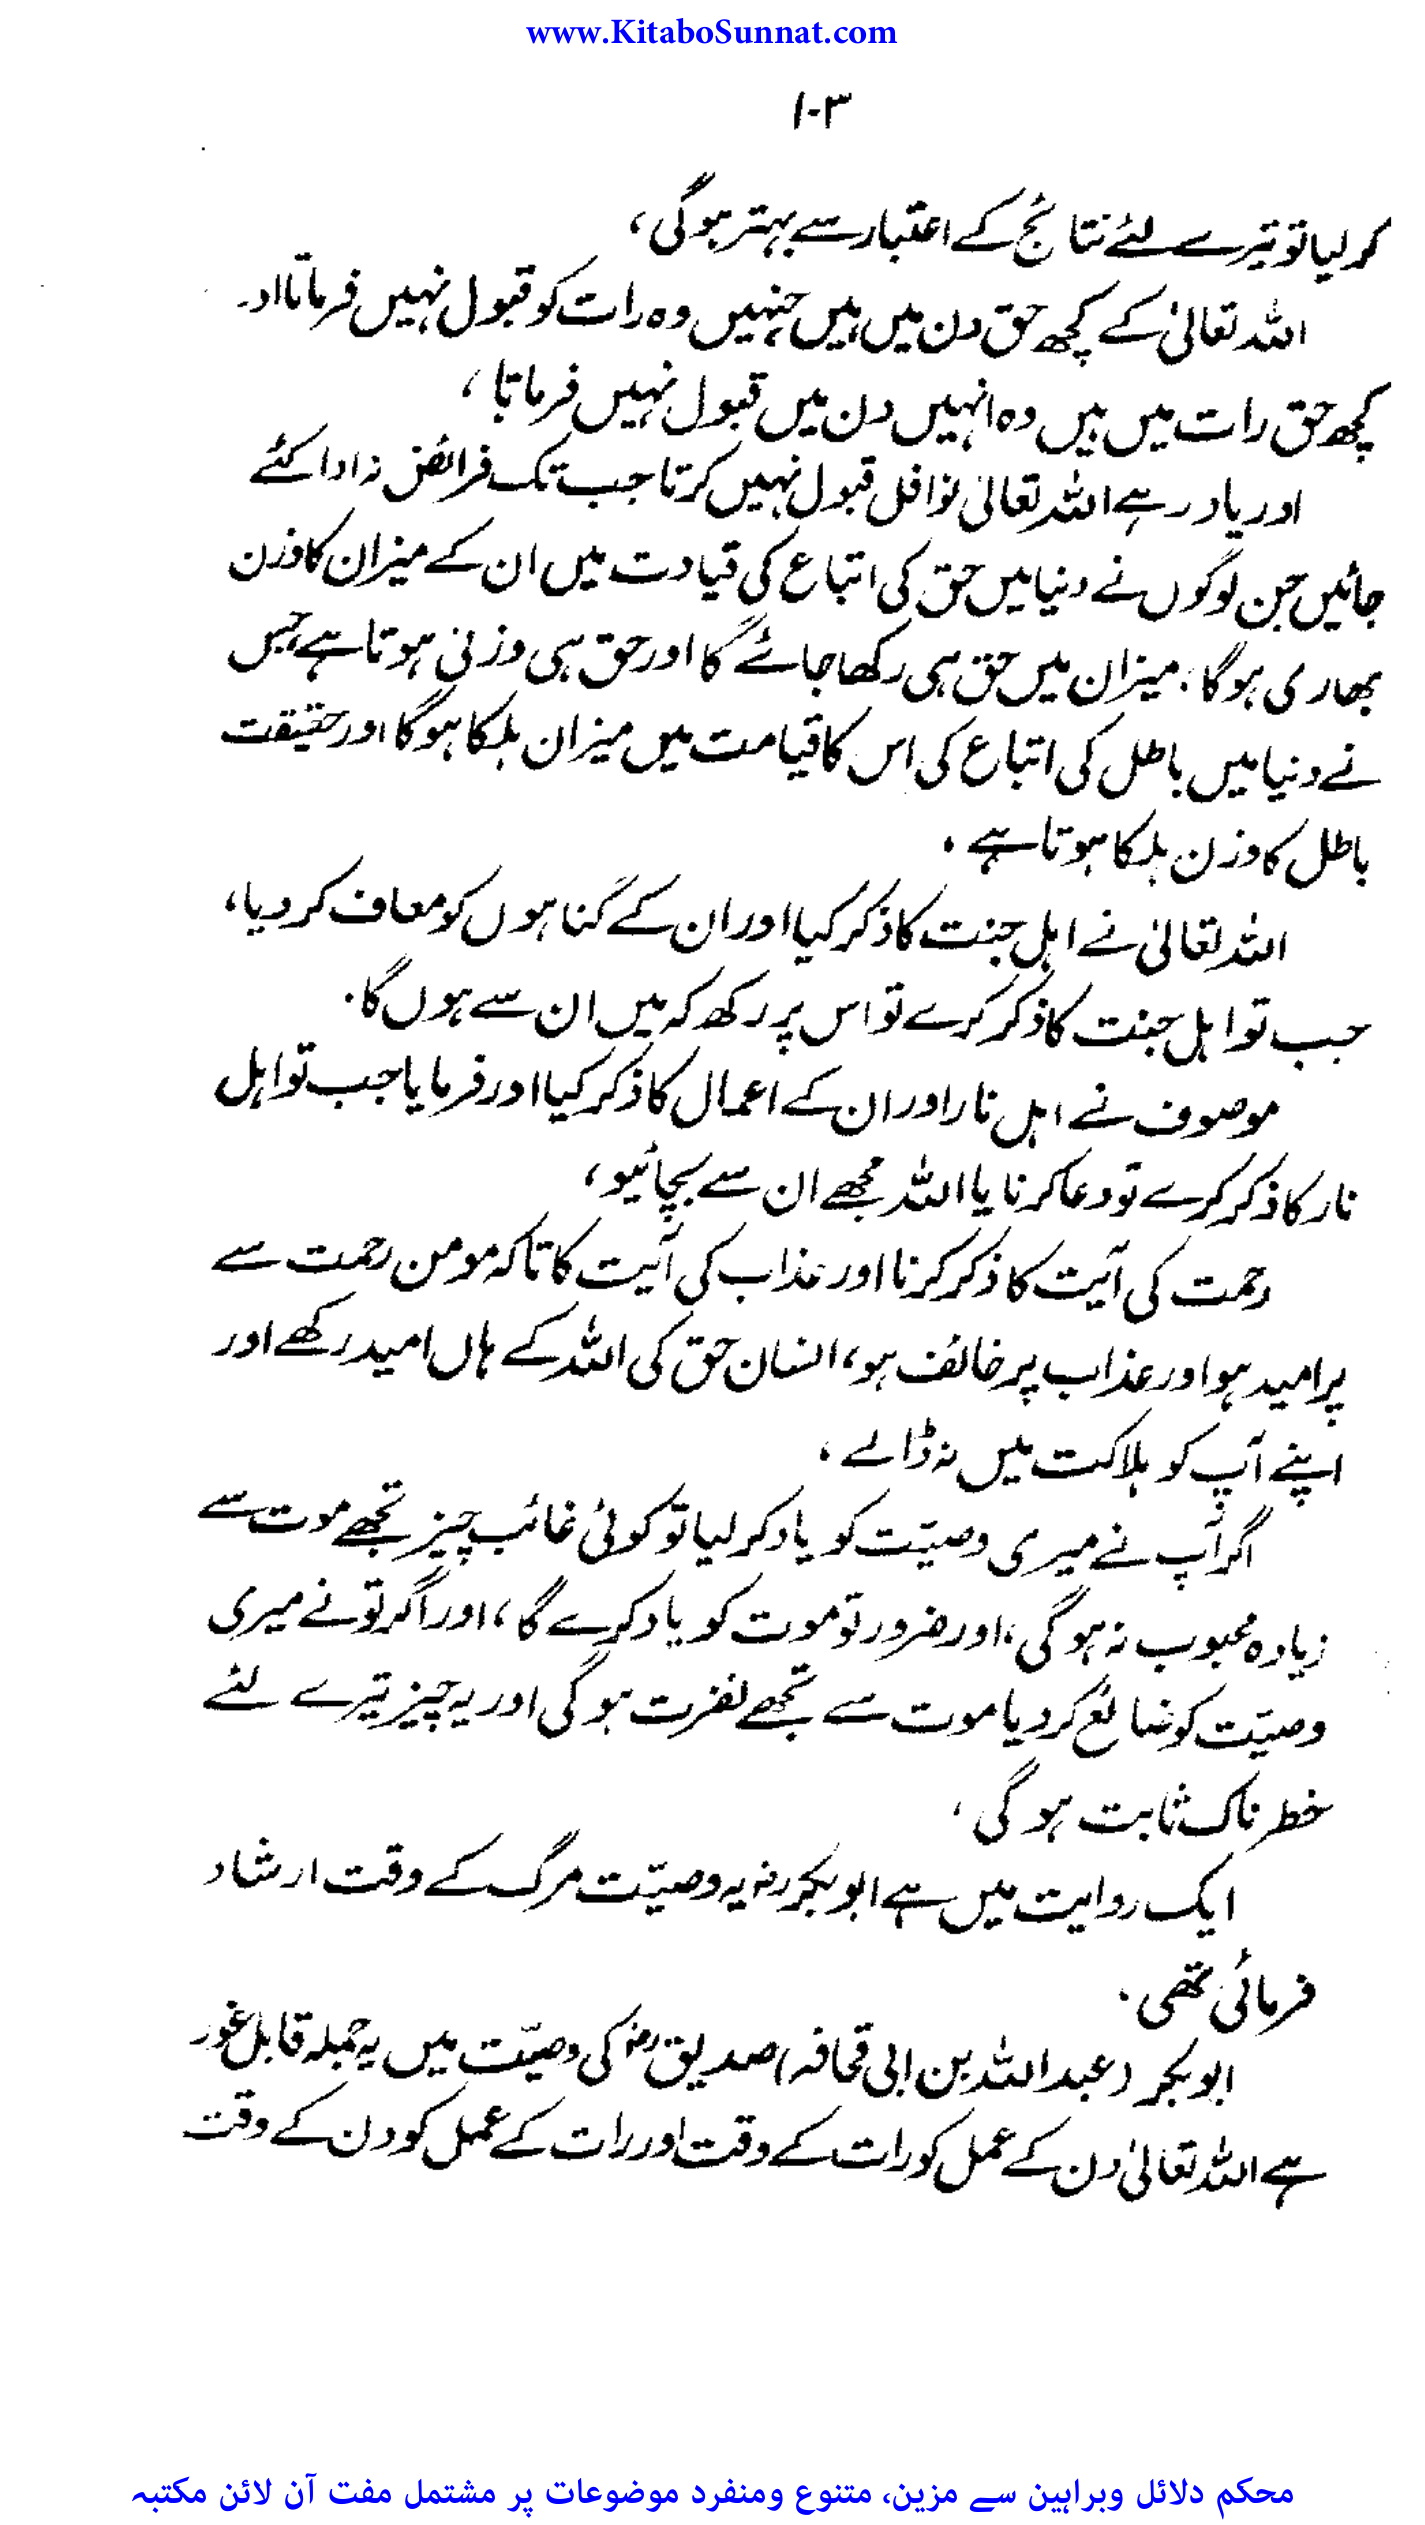 www.KitaboSunnat.com
۱۰۳
کر لیا تو تیرے لئے نتائج کے اعتبار سے بہتر ہوگی،
اللہ تعالیٰ کے کچھ حق دن میں ہیں جنہیں وہ رات کو قبول نہیں فرماتا اور
کچھ حق رات میں ہیں وہ انہیں دن میں قبول نہیں فرماتا،
اور یاد رہے اللہ تعالیٰ نوافل قبول نہیں کرتا جب تک فرائض نہ ادا کئے
جائیں جن لوگوں نے دنیا میں حق کی اتباع کی قیادت میں ان کے میزان کا وزن
بھاری ہوگا، میزان میں حق ہی رکھا جائے گا اور حق ہی وزنی ہوتا ہے جس
نے دنیا میں باطل کی اتباع کی اس کا قیامت میں میزان ہلکا ہوگا اور حقیقت
باطل کا وزن ہلکا ہوتا ہے،
اللہ تعالیٰ نے اہل جنت کا ذکر کیا اور ان کے گناہوں کو معاف کر دیا،
جب تو اہل جنت کا ذکر کرے تو اس پر رکھ کہ میں ان سے ہوں گا۔
موصوف نے اہل نار اور ان کے اعمال کا ذکر کیا اور فرمایا جب تو اہل
نار کا ذکر کرے تو دعا کرنا یا اللہ مجھے ان سے بچائیو،
رحمت کی آیت کا ذکر کرنا اور عذاب کی آیت کا تاکہ مومن رحمت سے
پر امید ہو اور عذاب پر خائف ہو، انسان حق کی اللہ کے ہاں امید رکھے اور
اپنے آپ کو ہلاکت میں نہ ڈالے،
اگر آپ نے میری وصیّت کو یاد کر لیا تو کوئی غائب چیز تجھے موت سے
زیادہ محبوب نہ ہوگی، اور ضرور تو موت کو یاد کرے گا، اور اگر تو نے میری
وصیّت کو ضائع کر دیا موت سے تجھے نفرت ہوگی اور یہ چیز تیرے لئے
خطرناک ثابت ہوگی،
ایک روایت میں ہے ابو بکرؓ یہ وصیّت مرگ کے وقت ارشاد
فرمائی تھی۔
ابو بکر (عبداللہ بن ابی قحافہ) صدیقؓ کی وصیّت میں یہ جملہ قابل غور
ہے اللہ تعالیٰ دن کے عمل کو رات کے وقت اور رات کے عمل کو دن کے وقت
محکم دلائل وبراہین سے مزین، متنوع ومنفرد موضوعات پر مشتمل مفت آن لائن مکتبہ